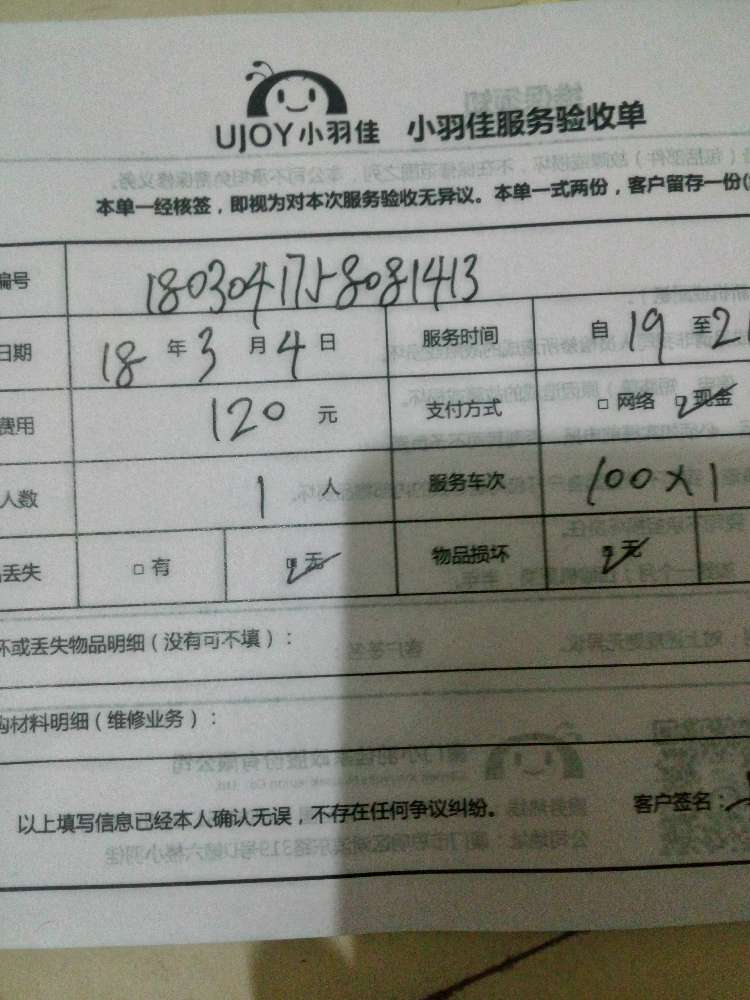 UJOY小羽佳 小羽佳服务验收单
本单一经核签，即视为对本次服务验收无异议。本单一式两份，客户留存一份(
编号 1803041758081413
日期 18 年 3 月 4 日 服务时间 自 19 至 2
费用 120 元 支付方式 □ 网络 □ 现金
人数 1 人 服务车次 100×1
丢失 □ 有 □ 无 物品损坏 □ 无
坏或丢失物品明细（没有可不填）：
购材料明细（维修业务）：
以上填写信息已经本人确认无误，不存在任何争议纠纷。 客户签名：